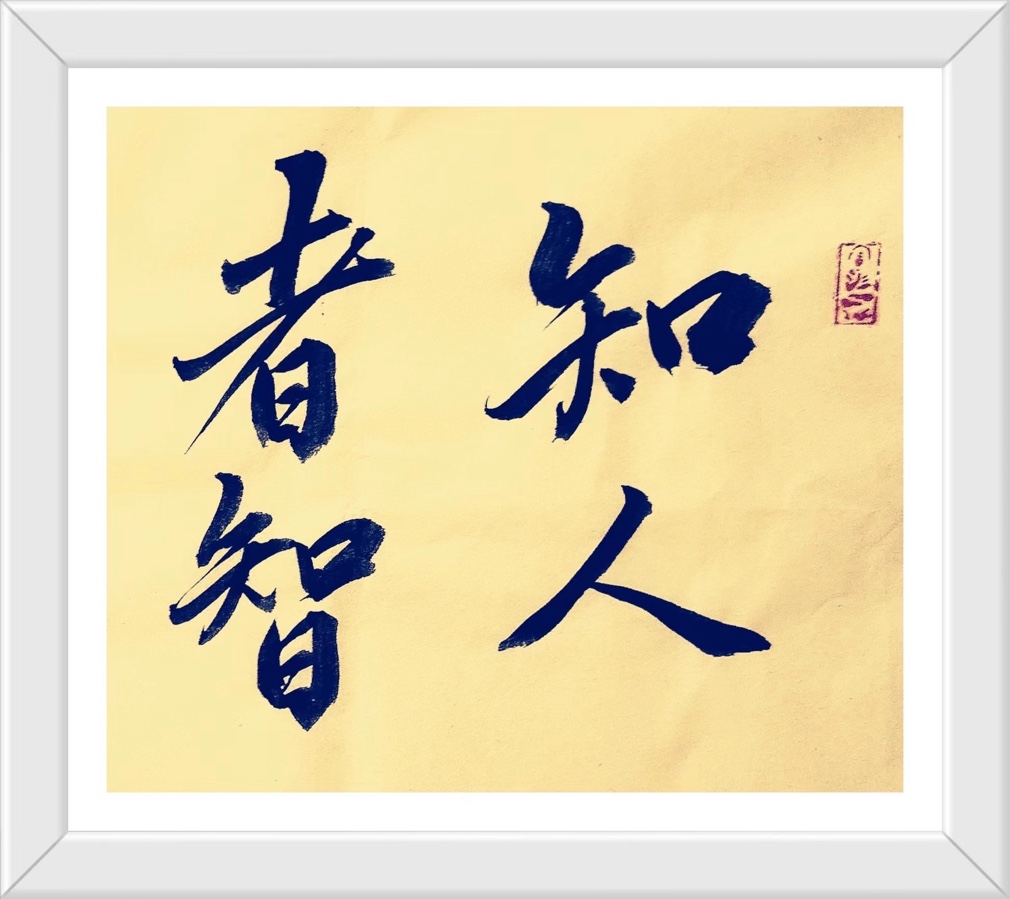 知人
者智